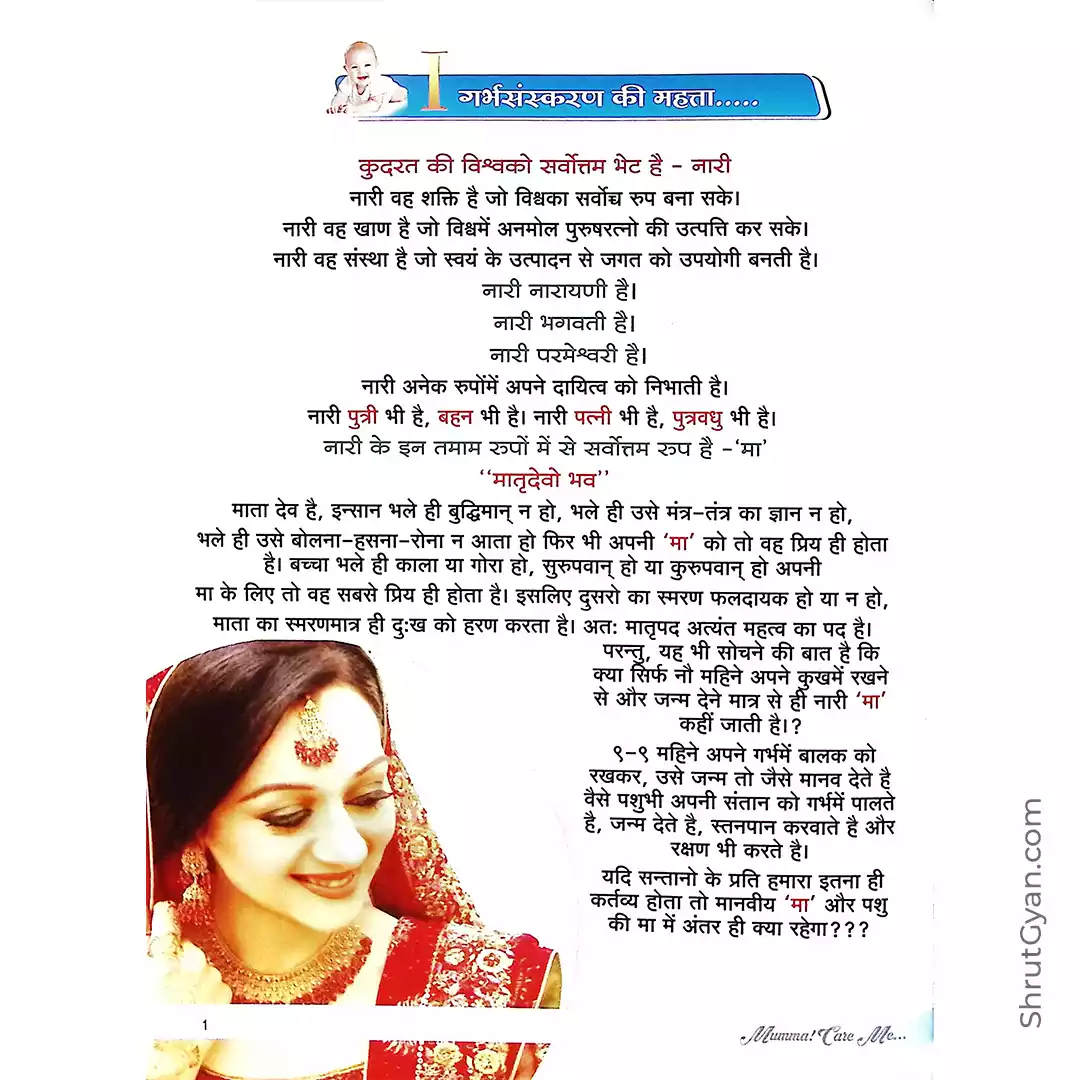 I गर्भसंस्करण की महत्ता.....
कुदरत की विश्वको सर्वोत्तम भेट है - नारी
नारी वह शक्ति है जो विश्वका सर्वोच्च रुप बना सके।
नारी वह खाण है जो विश्वमें अनमोल पुरुषरत्नो की उत्पत्ति कर सके।
नारी वह संस्था है जो स्वयं के उत्पादन से जगत को उपयोगी बनती है।
नारी नारायणी है।
नारी भगवती है।
नारी परमेश्वरी है।
नारी अनेक रुपोंमें अपने दायित्व को निभाती है।
नारी पुत्री भी है, बहन भी है। नारी पत्नी भी है, पुत्रवधु भी है।
नारी के इन तमाम रुपों में से सर्वोत्तम रुप है -‘मा’
‘‘मातृदेवो भव’’
माता देव है, इन्सान भले ही बुद्धिमान् न हो, भले ही उसे मंत्र-तंत्र का ज्ञान न हो,
भले ही उसे बोलना-हसना-रोना न आता हो फिर भी अपनी ‘मा’ को तो वह प्रिय ही होता
है। बच्चा भले ही काला या गोरा हो, सुरुपवान् हो या कुरुपवान् हो अपनी
मा के लिए तो वह सबसे प्रिय ही होता है। इसलिए दुसरो का स्मरण फलदायक हो या न हो,
माता का स्मरणमात्र ही दुःख को हरण करता है। अतः मातृपद अत्यंत महत्व का पद है।
परन्तु, यह भी सोचने की बात है कि
क्या सिर्फ नौ महिने अपने कुखमें रखने
से और जन्म देने मात्र से ही नारी ‘मा’
कहीं जाती है।?
९-९ महिने अपने गर्भमें बालक को
रखकर, उसे जन्म तो जैसे मानव देते है
वैसे पशुभी अपनी संतान को गर्भमें पालते
है, जन्म देते है, स्तनपान करवाते है और
रक्षण भी करते है।
यदि सन्तानो के प्रति हमारा इतना ही
कर्तव्य होता तो मानवीय ‘मा’ और पशु
की मा में अंतर ही क्या रहेगा???
1
Mumma! Care Me...
ShrutGyan.com